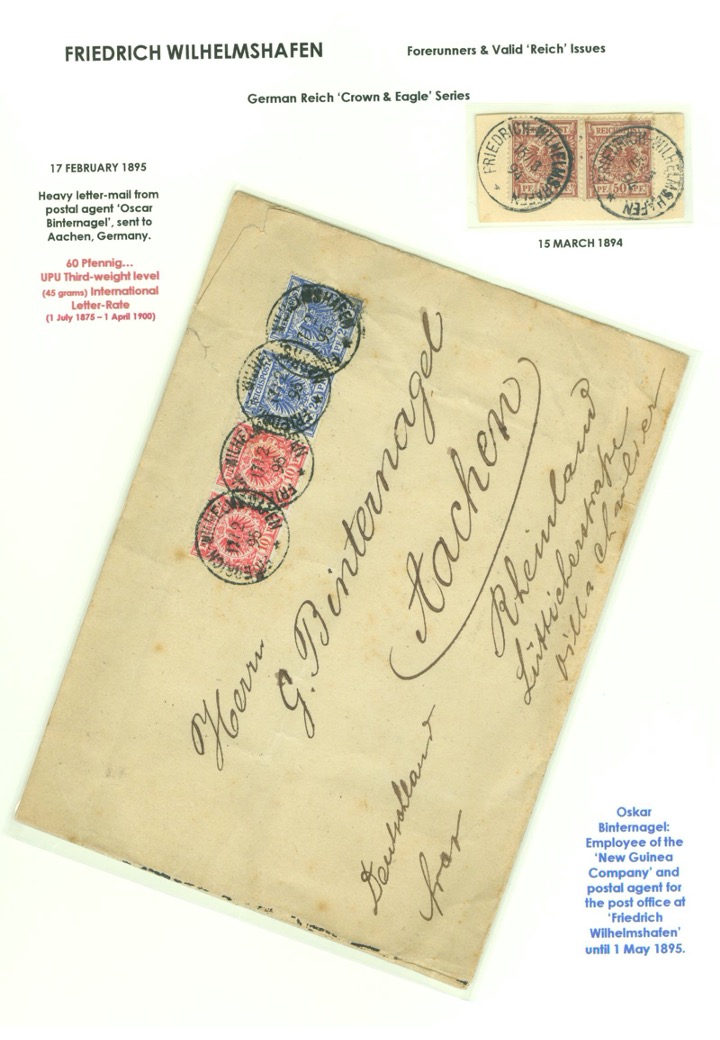 FRIEDRICH WILHELMSHAFEN
Forerunners & Valid ‘Reich’ Issues
German Reich ‘Crown & Eagle’ Series
FRIEDRICH-WILHELMSHAFEN
FRIEDRICH-WILHELMSHAFEN
50 PF
15 MARCH 1894
17 FEBRUARY 1895
Heavy letter-mail from
postal agent ‘Oscar
Binternagel’, sent to
Aachen, Germany.
60 Pfennig…
UPU Third-weight level
(45 grams) International
Letter-Rate
(1 July 1875 – 1 April 1900)
Herrn
G. Binternagel
Aachen
Rheinland
Lütticherstraße
Villa
Deutschland
Oskar
Binternagel:
Employee of the
‘New Guinea
Company’ and
postal agent for
the post office at
‘Friedrich
Wilhelmshafen’
until 1 May 1895.